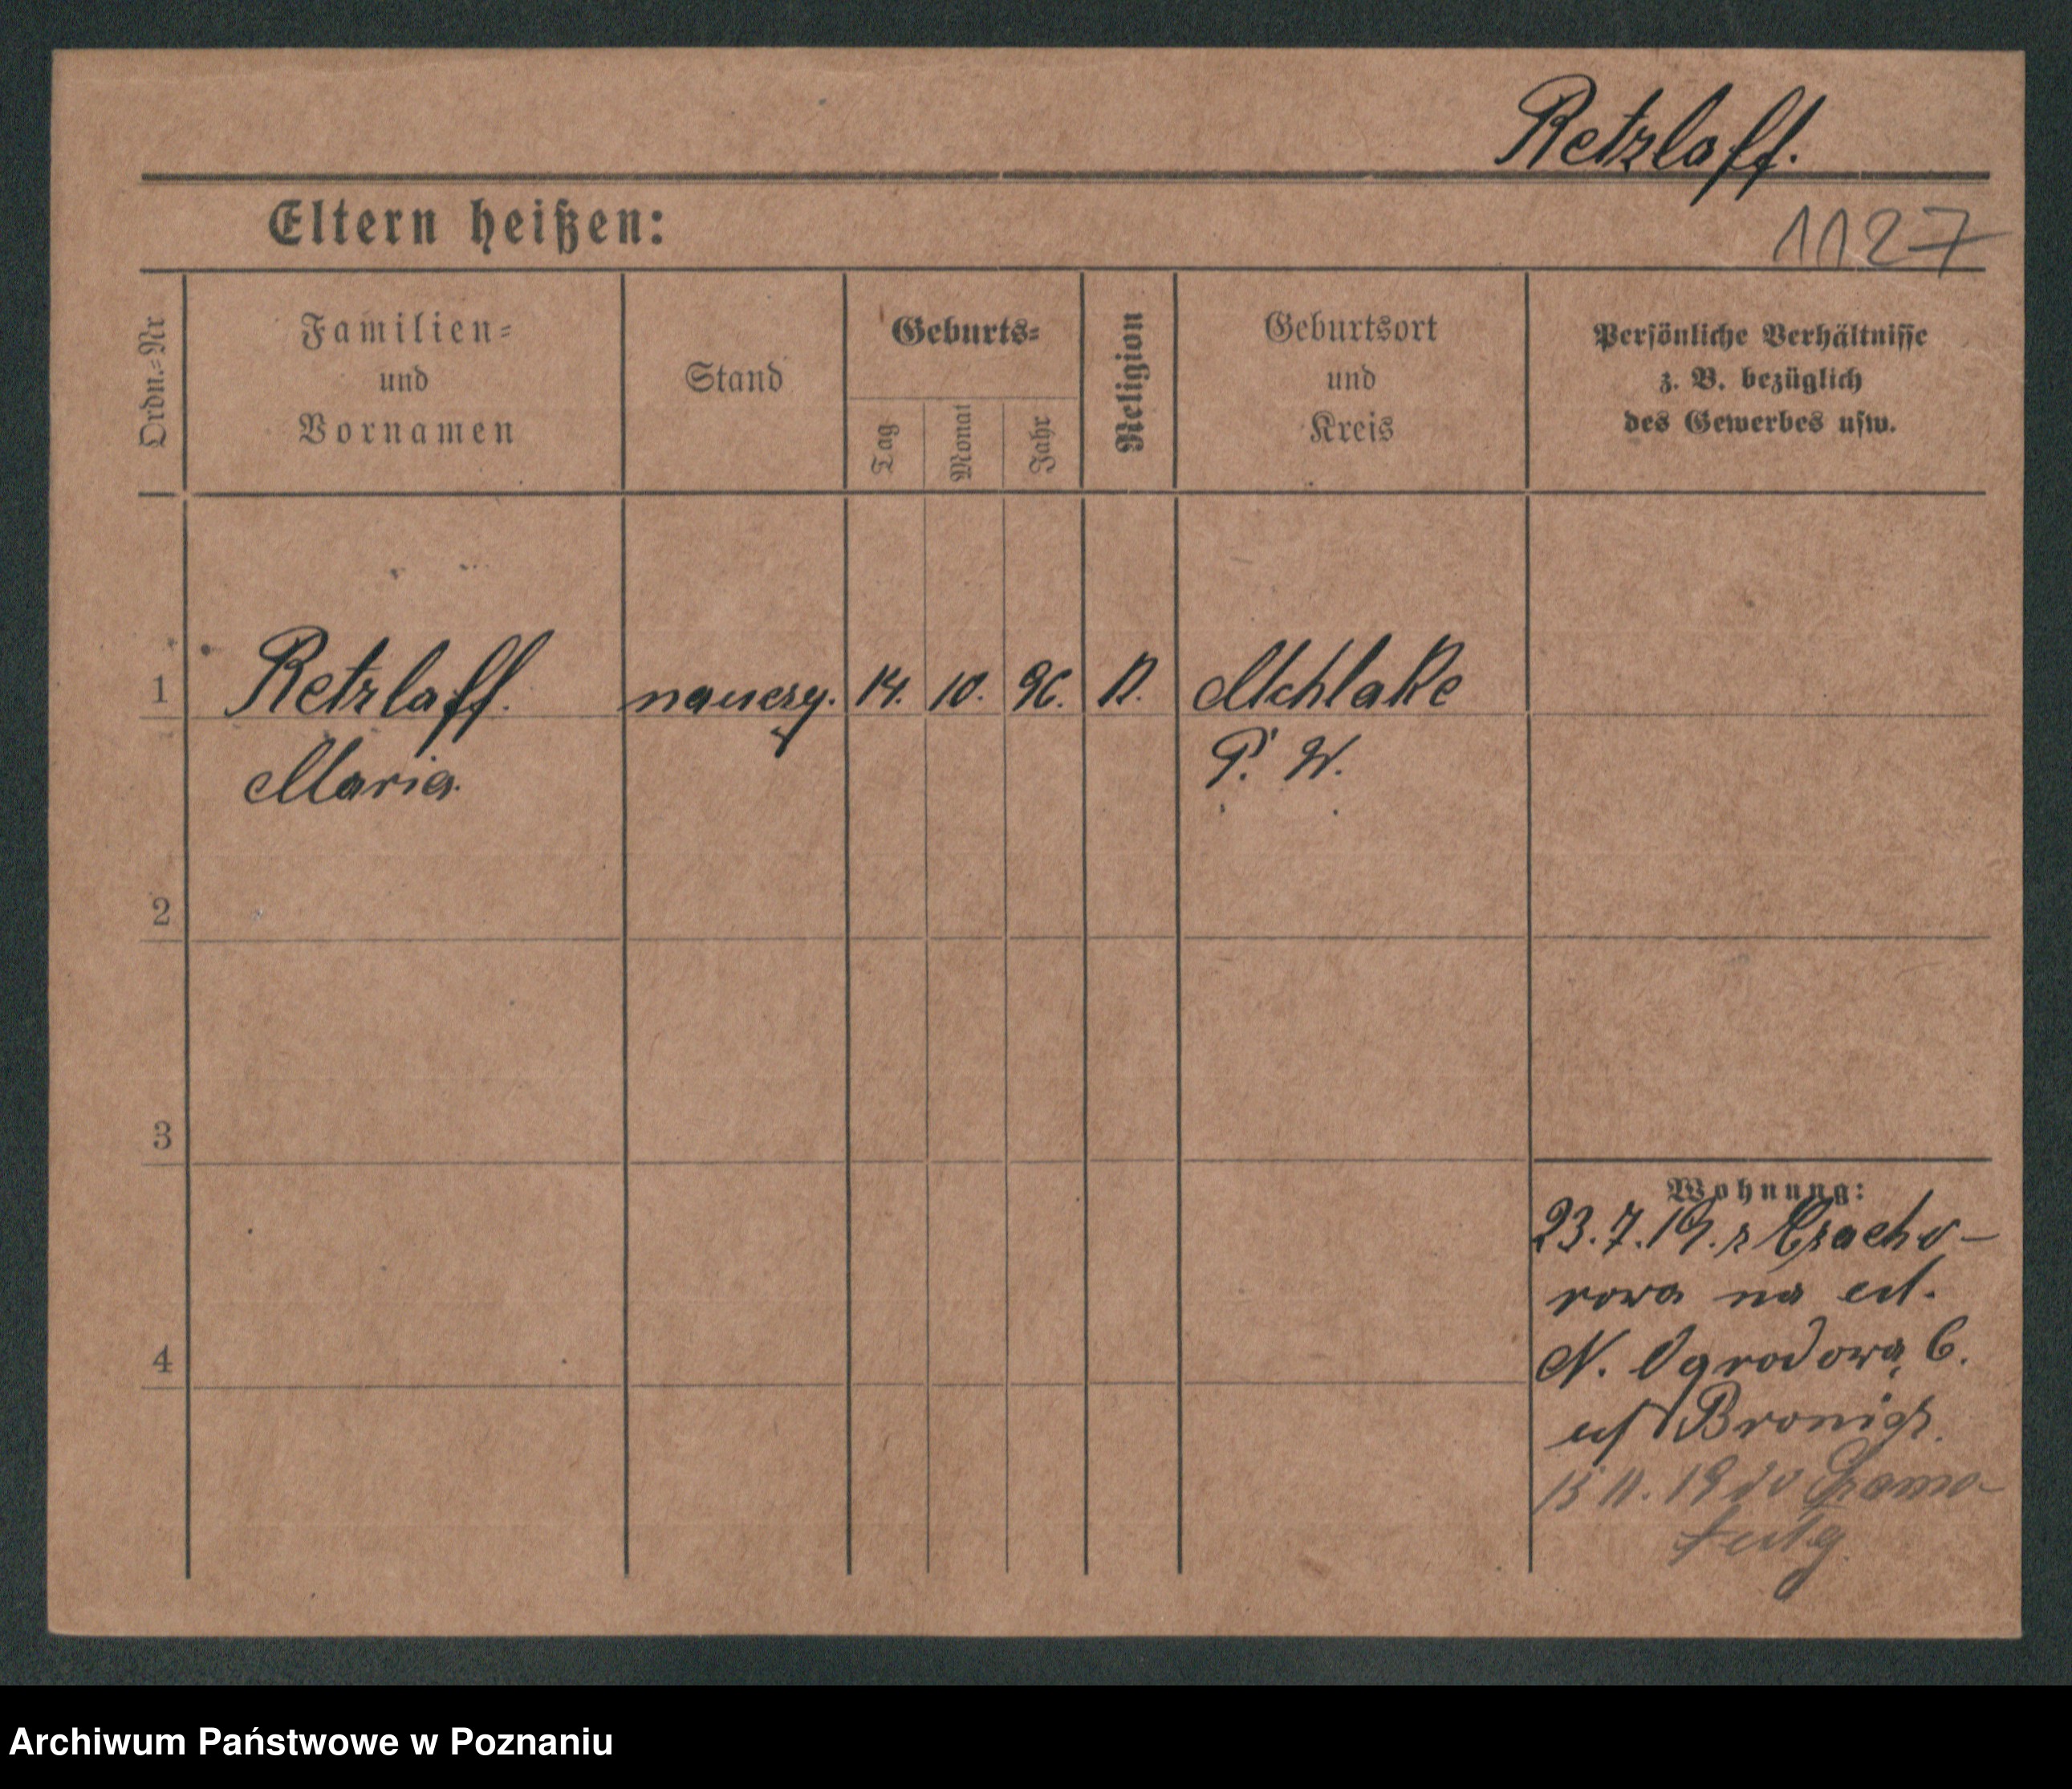 Retzlaff.
Eltern heißen:
1127
Ordn.-Nr
Familien-
und
Vornamen
Stand
Geburts-
Tag
Monat
Jahr
Religion
Geburtsort
und
Kreis
Persönliche Verhältnisse
z. B. bezüglich
des Gewerbes usw.
1 Retzlaff. nauczy. 14. 10. 96.
Maria.
P. W.
2
3
Wohnung:
23.7.19. z Czacho-
rowa na ul.
4
N. Ogrodowa 6.
uf Bronisz.
19 do Szamo-
tuły
Archiwum Państwowe w Poznaniu